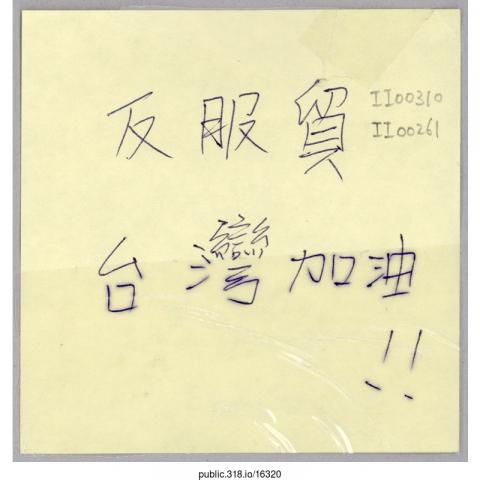 反服貿
II00310
II00261
台灣加油
!!
public.318.io/16320